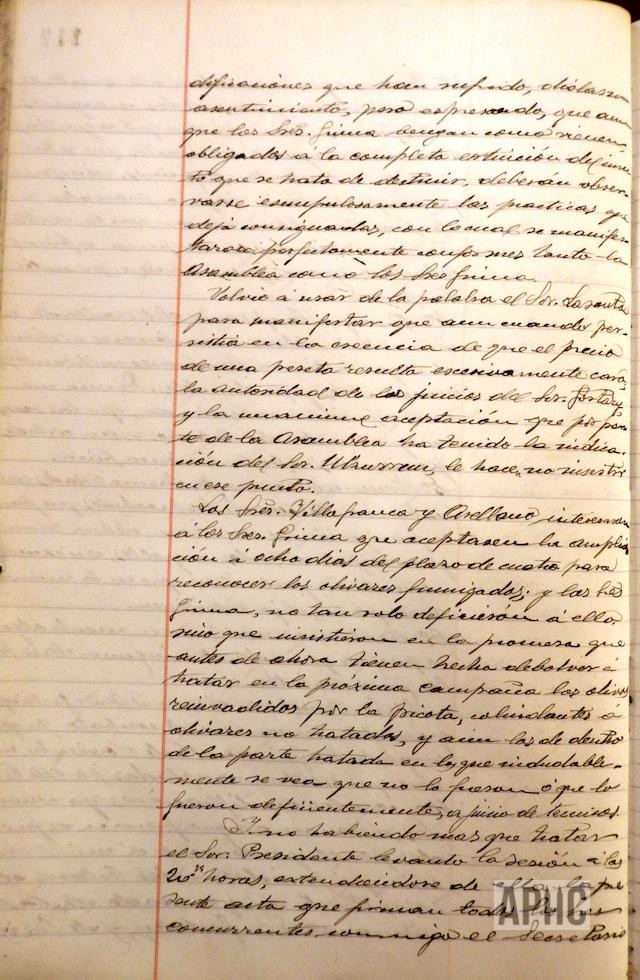 dificaciones que han sufrido, diólas su
asentimiento, pero expresando, que aun
que los Sres. Girna bengan como vienen
obligados á la completa extinción del insec
to que se trata de destruir, deberán obser
varse escrupulosamente las practicas que
deja consignadas, con lo cual se manifes
taron perfectamente conformes tanto la
Asamblea como los Sres Girna.
Volvió á usar de la palabra el Sor. Lasanta
para manifestar que aun cuando per-
sistia en la creencia de que el precio
de una peseta resulta excesivamente caro,
la autoridad de los juicios del Sor.
y la unanime aceptación que por par
te de la Asamblea ha tenido la indica-
ción del Sor. Uhurrun, le hacen no insistir
en ese punto.
Los Sres. Villafranca y Arellano interesaron
á los Sres. Girna que aceptasen la amplia
ción á ocho dias del plazo de cuatro para
reconocer los olivares fumigados; y los Sres
Girna, no tan solo definieron á ello
sino que insistieron en la promesa que
antes de ahora tienen hecha debolver á
tratar en la próxima campaña los olivos
reinvadidos por la picota, colindantes á
olivares no tratados, y aun los de dentro
de la parte tratada en los que indudable-
mente se vea que no lo fueron ó que lo
fueron deficientemente, á juicio de tecnicos.
Y no habiendo mas que tratar
el Sor. Presidente levantó la sesión á las
20 horas, extendiendose de ella la pre
sente acta que firman todos los Sres
concurrentes conmigo el Secretario
APHC